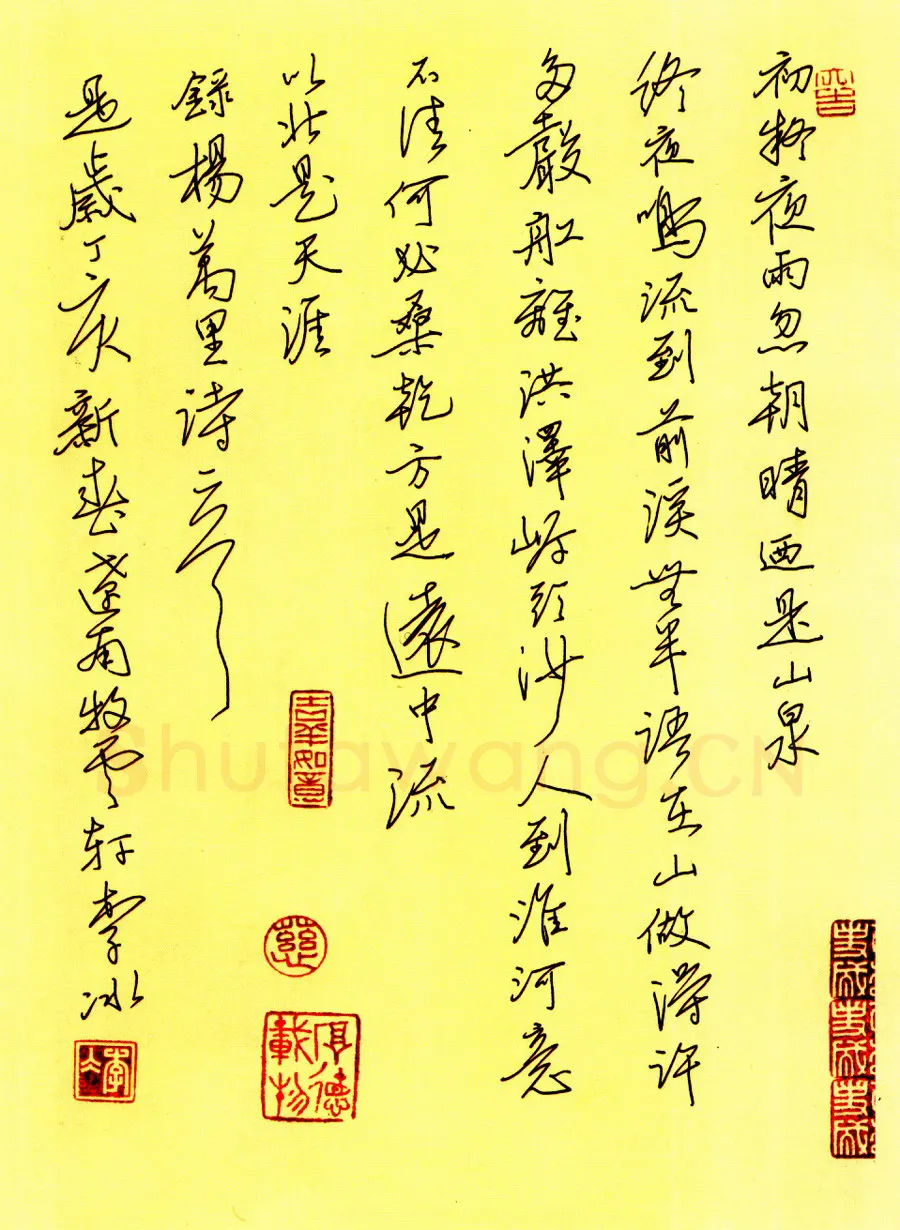 初疑夜雨忽朝晴迺是山泉
終夜鳴流到前溪無半語在山做得許
多聲船離洪澤岸頭沙人到淮河意
不佳何必桑乾方是遠中流
以北是天涯
錄楊萬里詩二首
是歲丁亥新春遼南牧雲軒李冰
吉羊如意
厚德載物
李冰
Shufawang.CN